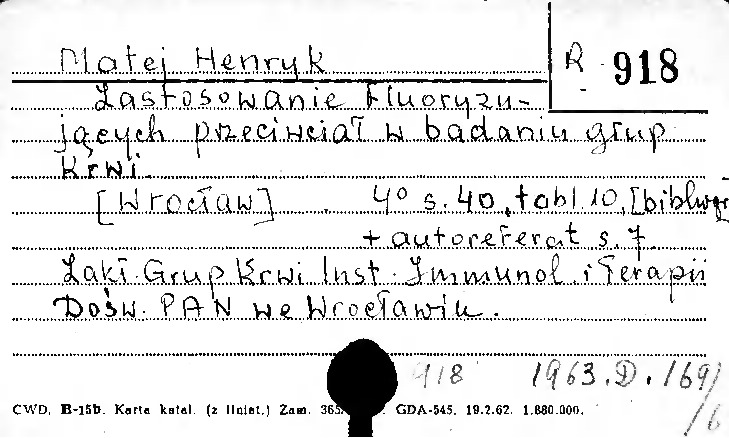 Matej Henryk
R 918
Zastosowanie fluoryzu-
jących przeciwciał w badaniu grup
krwi.
[Wrocław] 4° s. 40, tabl. 10, [bibliogr
+ autoreferat s. 7.
Zakł. Grup Krwi Inst. Immunol. i Terapii
Dośw. PAN we Wrocławiu.
918 1963.D.169/
/6
CWD. B-15b. Karta katal. (z liniat.) Zam. GDA-545. 19.2.62. 1.880.000.